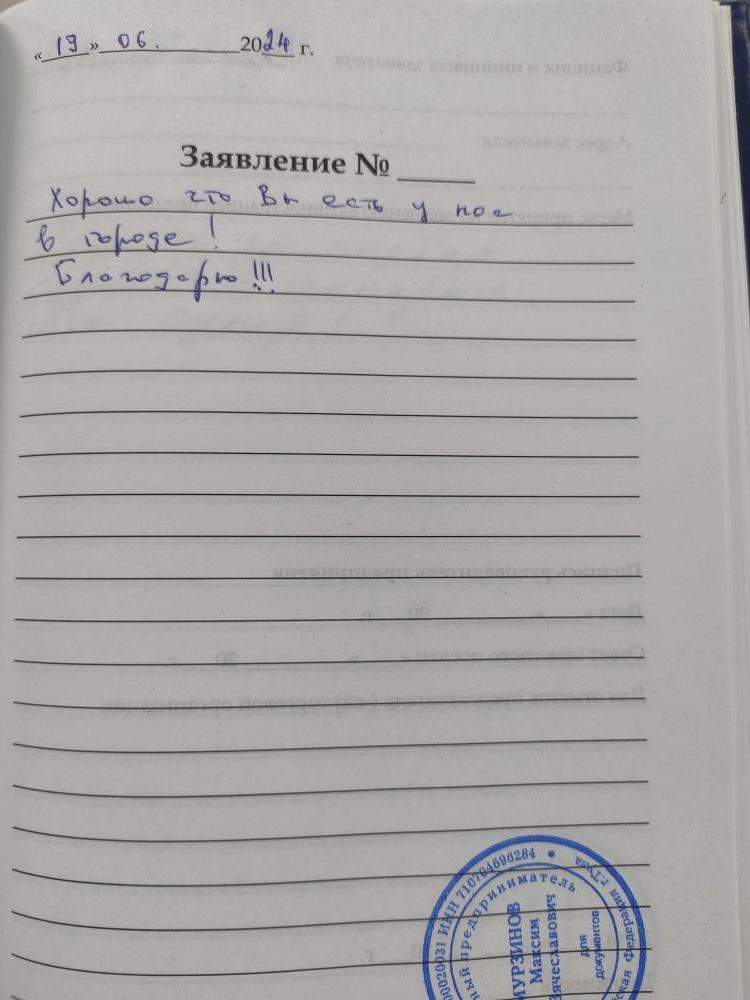 «19» 06. 2024 г.
Заявление №
Хорошо что Вы есть у нас
в городе!
Благодарю!!!
00020031 ИНН 710704696284 •
г.Тула
кая Федерация
ный предприниматель
МУРЗИНОВ
Максим
Вячеславович
для
документов